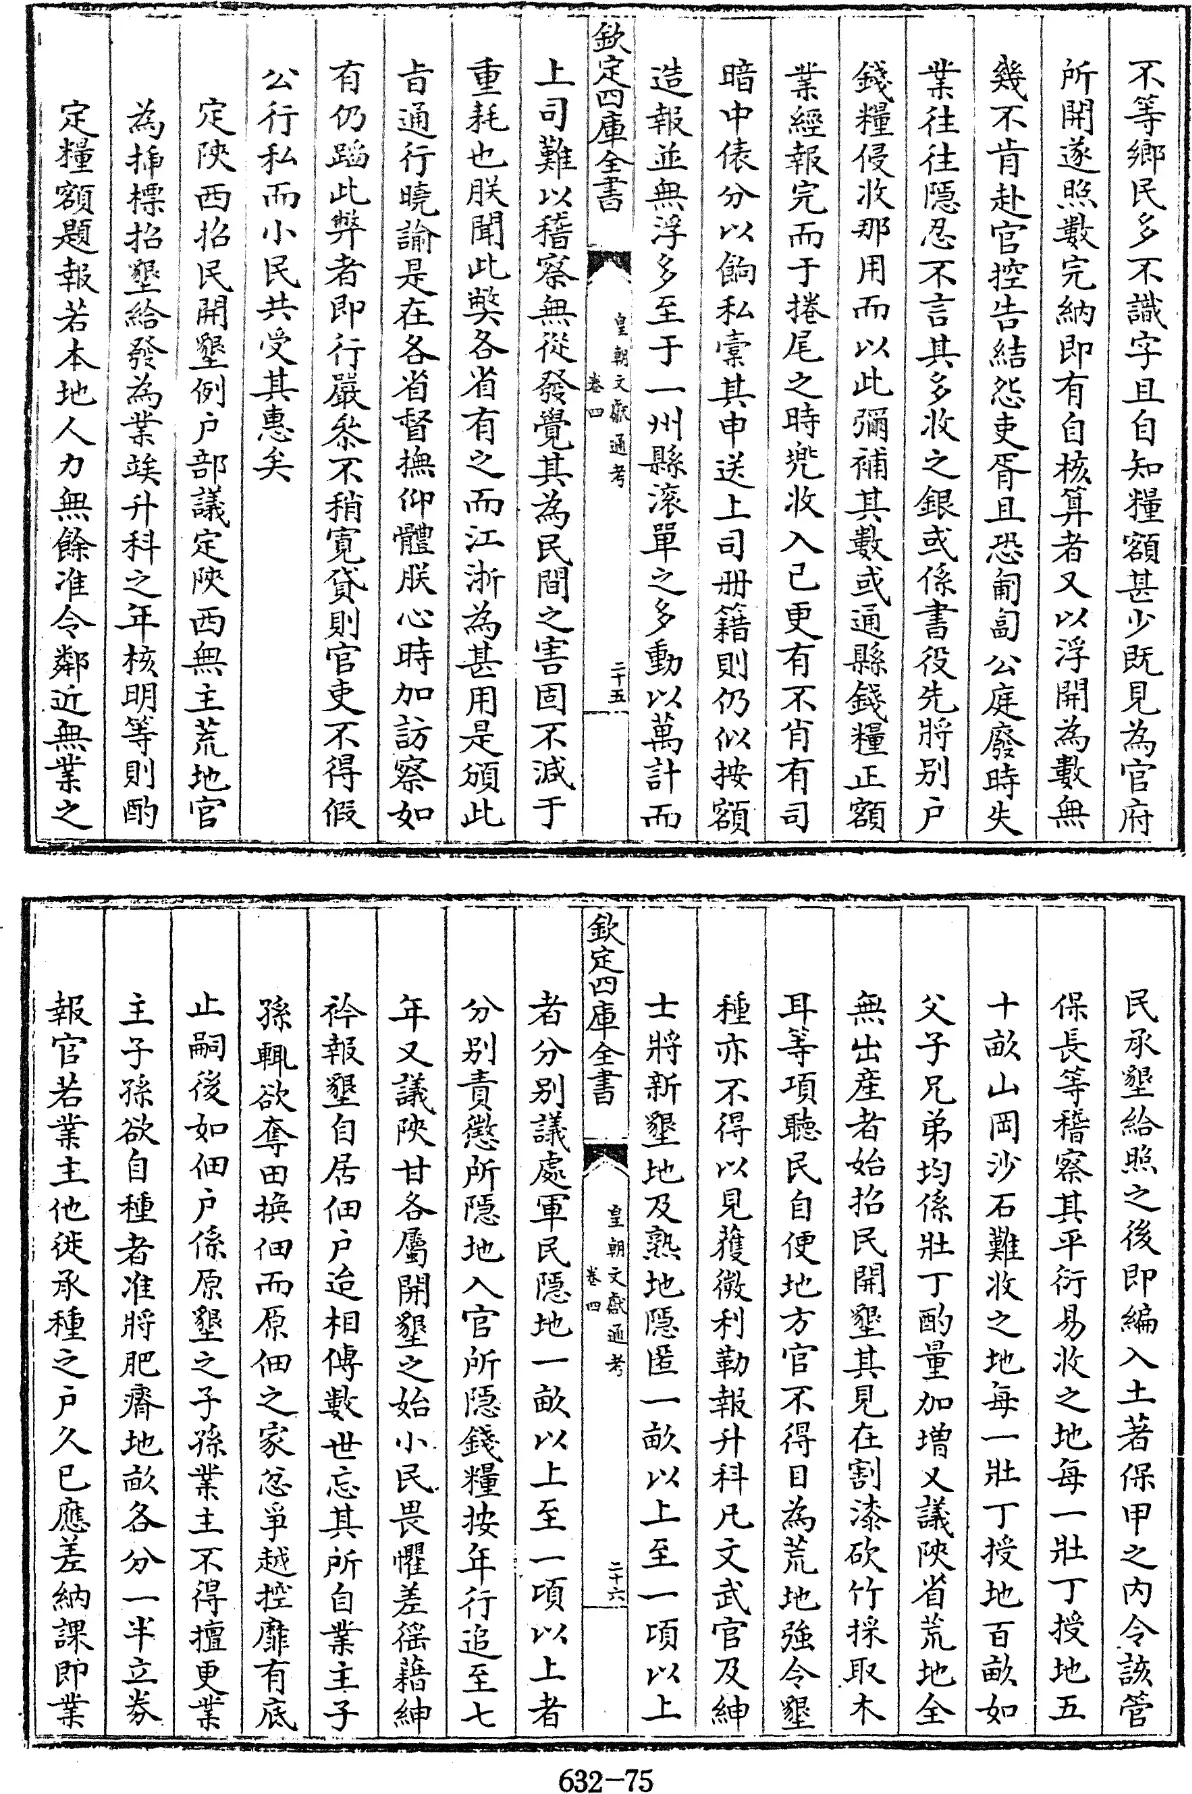 不等鄉民多不識字且自知糧額甚少既見為官府
所開遂照數完納即有自核算者又以浮開為數無
幾不肯赴官控告結怨吏胥且恐匍匐公庭廢時失
業往往隱忍不言其多收之銀或係書役先將別户
錢糧侵收那用而以此彌補其數或通縣錢糧正額
業經報完而于捲尾之時兜收入己更有不肖有司
暗中俵分以飽私橐其申送上司册籍則仍似按額
造報並無浮多至于一州縣滚單之多動以萬計而
欽定四庫全書
皇朝文獻通考
卷四
二十五
上司難以稽察無從發覺其為民間之害固不減于
重耗也朕聞此弊各省有之而江浙為甚用是頒此
旨通行曉諭是在各省督撫仰體朕心時加訪察如
有仍蹈此弊者即行嚴叅不稍寬貸則官吏不得假
公行私而小民共受其惠矣
定陜西招民開墾例户部議定陜西無主荒地官
為插標招墾給發為業竢升科之年核明等則酌
定糧額題報若本地人力無餘准令鄰近無業之
民承墾給照之後即編入土著保甲之内令該管
保長等稽察其平衍易收之地每一壯丁授地五
十畝山岡沙石難收之地每一壯丁授地百畝如
父子兄弟均係壯丁酌量加增又議陜省荒地全
無出產者始招民開墾其見在割漆砍竹採取木
耳等項聽民自便地方官不得目為荒地強令墾
種亦不得以見獲微利勒報升科凡文武官及紳
士將新墾地及熟地隱匿一畝以上至一頃以上
欽定四庫全書
皇朝文獻通考
卷四
二十六
者分別議處軍民隱地一畝以上至一頃以上者
分別責懲所隱地入官所隱錢糧按年行追至七
年又議陜甘各屬開墾之始小民畏懼差徭藉紳
衿報墾自居佃户迨相傳數世忘其所自業主子
孫輒欲奪田換佃而原佃之家忿爭越控靡有底
止嗣後如佃户係原墾之子孫業主不得擅更業
主子孫欲自種者准將肥瘠地畝各分一半立劵
報官若業主他徙承種之户久已應差納課即業
632-75